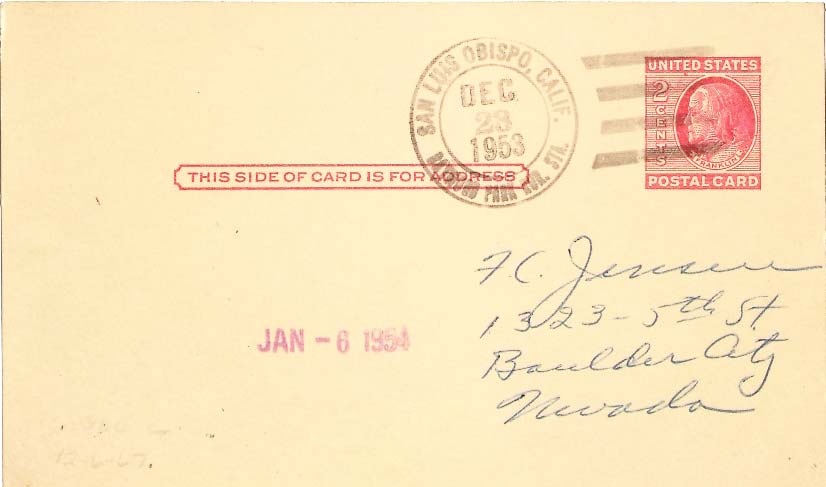 SAN LUIS OBISPO, CALIF.
DEC
23
1953
PARK RUR. STA.
UNITED STATES
2 CENTS
FRANKLIN
POSTAL CARD
THIS SIDE OF CARD IS FOR ADDRESS
F.C. Jensen
1323-5th St
Boulder City
Nevada
JAN - 6 1954